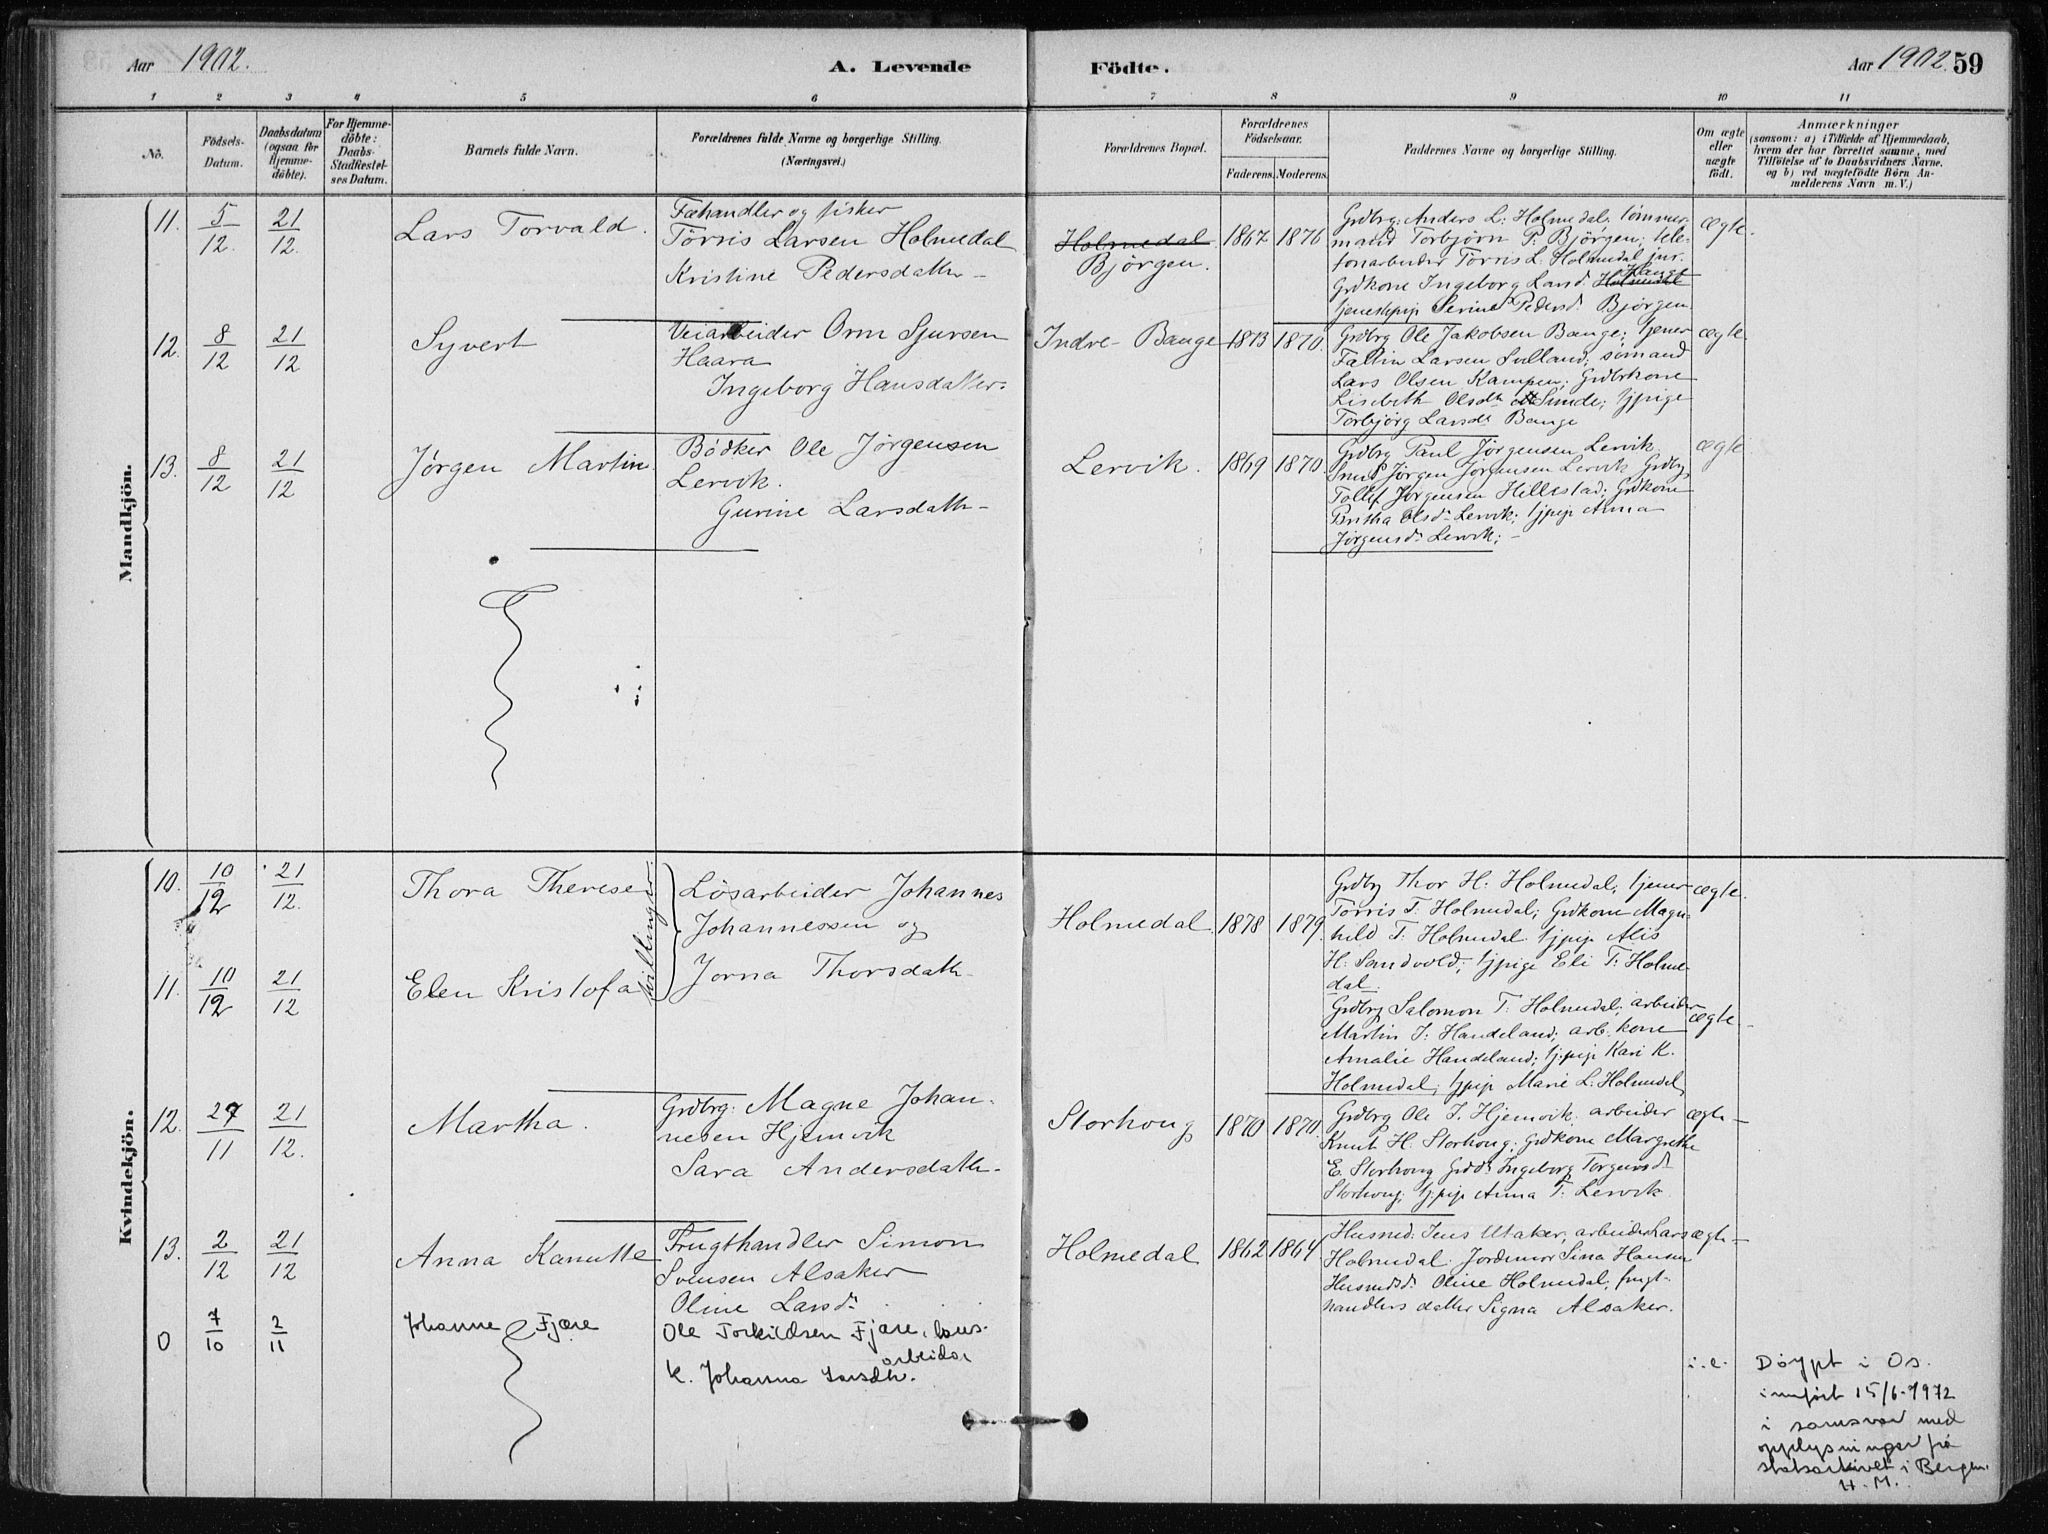 Aar 1902. A. Levende Födte. Aar 1902. 59
1 2 3 4 5 6 7 8 9 10 11
No.
Födsels-Datum.
Daabsdatum (ogsaa for Hjemme-döbte).
For Hjemme-döbte: Daabs-Stadfæstel-ses Datum.
Barnets fulde Navn.
Forældrenes fulde Navne og borgerlige Stilling.
(Næringsvei.)
Forældrenes Bopæl.
Forældrenes Födselsaar.
Faderens. Moderens.
Faddernes Navne og borgerlige Stilling.
Om ægte eller uægte födt.
Anmærkninger
(saasom: a) i Tilfælde af Hjemmedaab,
hvem der har forrettet samme, med
Tilföielse af to Daabsvidners Navne,
og b) ved uægtefödte Börn An-
melderens Navn m. V.)
Mandkjön.
11. 5/12. 21/12. Lars Torvald.
Fæhandler og fisker
Tørris Larsen Holmedal
Kristine Pedersdatter
Holmedal
Bjørgen.
1867 1876
Grdbrg: Anders L: Holmedal; tømmer-
mand Torbjørn P: Bjørgen; tele-
fonarbeider Tørris L: Holmedal jnr.
Grdkone Ingeborg Larsd. Holmedal Hauge
tjenestepip Serine Pedersd. Bjørgen
ægte.
12. 8/12 21/12 Syvert
Veiarbeider Orm Sjursen
Haara
Ingeborg Hansdatter.
Indre Bauge 1873 1870.
Grdbrg Ole Jakobsen Bauge; tjener
Faltin Larsen Sulland; sømand
Lars Olsen Kampen; Grdbrkone
Lisebeth Olsdtr Sunde; tjpige
Torbjørg Larsdr Bauge
ægte.
13. 8/12 21/12 Jørgen Martin.
Bødker Ole Jørgensen
Lervik.
Gurine Larsdattr
Lervik. 1869 1870.
Grdbrg Paul Jørgensen Lervik
Smed Jørgen Jørgensen Lervik Grdbrg
Tollef Jørgensen Hillestad; Grdkone
Britha Olsdr Lervik; tjpip Anna
Jørgensdr Lervik;
ægte.
Kvindekjön.
10. 10/12 21/12. Thora Therese
tvillinger.
Løsarbeider Johannes
Johannessen og
Jorna Thorsdattr
Holmedal. 1878 1879.
Grdbrg Thor H: Holmedal; tjener
Tørris T: Holmedal; Grdkone Magn-
hild T: Holmedal. tjpip Alis
H: Sandvold; tjpige Eli T: Holme-
dal.
ægte.
11. 10/12 21/12 Elen Kristofa
Grdbrg Salomon T: Holmedal; arbeider
Martin J: Handeland; arb. kone
Amalie Handeland; tjpip Kari K.
Holmedal; tjpip Marie L: Holmedal
ægte.
12. 27/11 21/12. Martha.
Grdbrg: Magne Johan-
nesen Hjemvik
Sara Andersdattr.
Storhoug 1870 1870.
Grdbrg Ole J. Hjemvik. arbeider
Knut H. Storhoug; Grdkone Margrethe
E. Storhoug Grdd. Ingeborg Torgersdr
Storhoug; tjpip Anna T: Lervik.
ægte
13. 2/12 21/12 Anna Kanutte
Frugthandler Simon
Svensen Alsaker
Oline Larsdr.
Holmedal 1862 1864.
Husmd. Jens Utaker, arbeider Lars
Holmedal. Jordemor Sina Hansen
Husmdsd. Oline Holmedal; frugt-
handlers datter Signa Alsaker.
ægte
0 7/10 2/11 Johanne Fjære
Ole Torkildsen Fjære, laus-
arbeidar
k. Johanna Larsdtr.
i.e. Døypt i Os.
innført 15/6-1972
i samsvar med
opplysninger frå
statsarkivet i Bergen.
H.M.